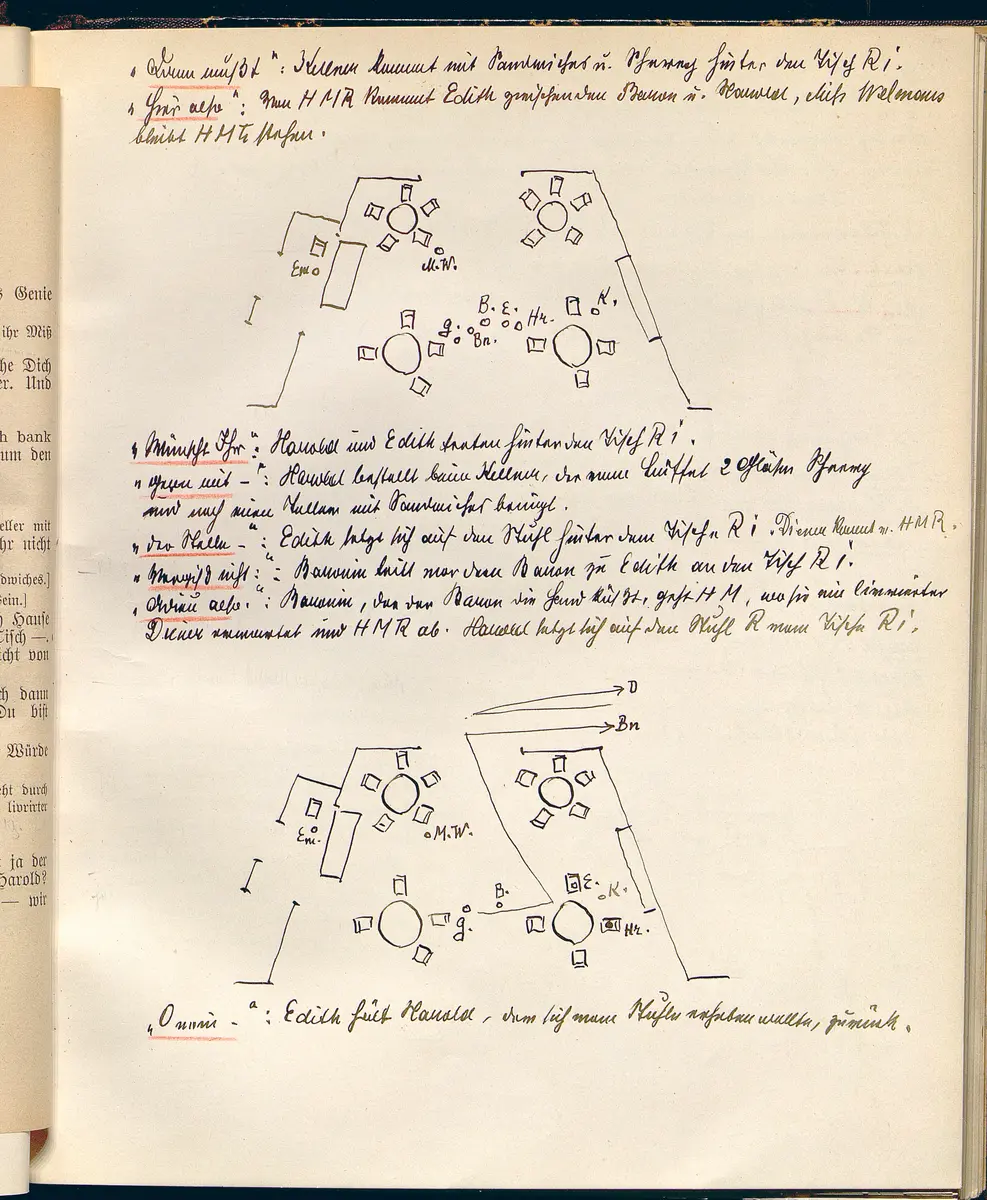 s Genie
ihr Miß
he Dich
er. Und
h bank
um den
eller mit
hr nicht
dwiches.]
ein.]
Hause
Tisch —.
icht von
ch dann
Du bist
Würde
eht durch
livrirter
ja der
Harold?
— wir
„Dann mußt“: Kellner kommt mit Sandwiches u. Scherry hinter den Tisch R i.
„Hier also“: Von H M R kommt Edith zwischen den Baron u. Harold, Miß
bleibt H M stehen.
Em.
M.W.
B. E.
Hr.
K.
g.
Bn.
„Wünscht Ihr“: Harold und Edith treten hinter den Tisch R i.
„gern mit –“: Harold bestellt beim Kellner, der vom Buffet 2 Gläser Scherry
und noch einen Teller mit Sandwiches bringt.
„der Stelle –“: Edith setzt sich auf den Stuhl hinter dem Tische R i. Diener kommt v. H M R.
„Vergiß nicht:“: Baronin tritt vor dem Baron zu Edith an den Tisch R i.
„Adieu also.“: Baronin, der der Baron die Hand küßt, geht H M, wo sie ein livrirter
Diener erwartet und H M R ab. Harold setzt sich auf den Stuhl R vom Tische R i.
D
Bn
Em.
M.W.
E.
K.
B.
g.
Hr.
„O nein –“: Edith hält Harold, der sich vom Stuhle erheben wollte, zurück.